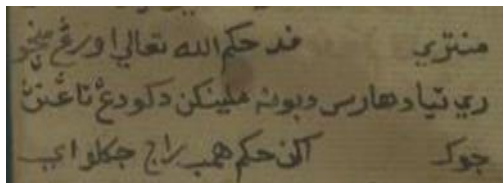 منتري فد حكم الله تعالى اورڠ يڠ منچوري
ري تياد هارس دبونه ملينكن دكودڠ تاڠنڽ
جوك اكن حكم همب راج جكلو اي